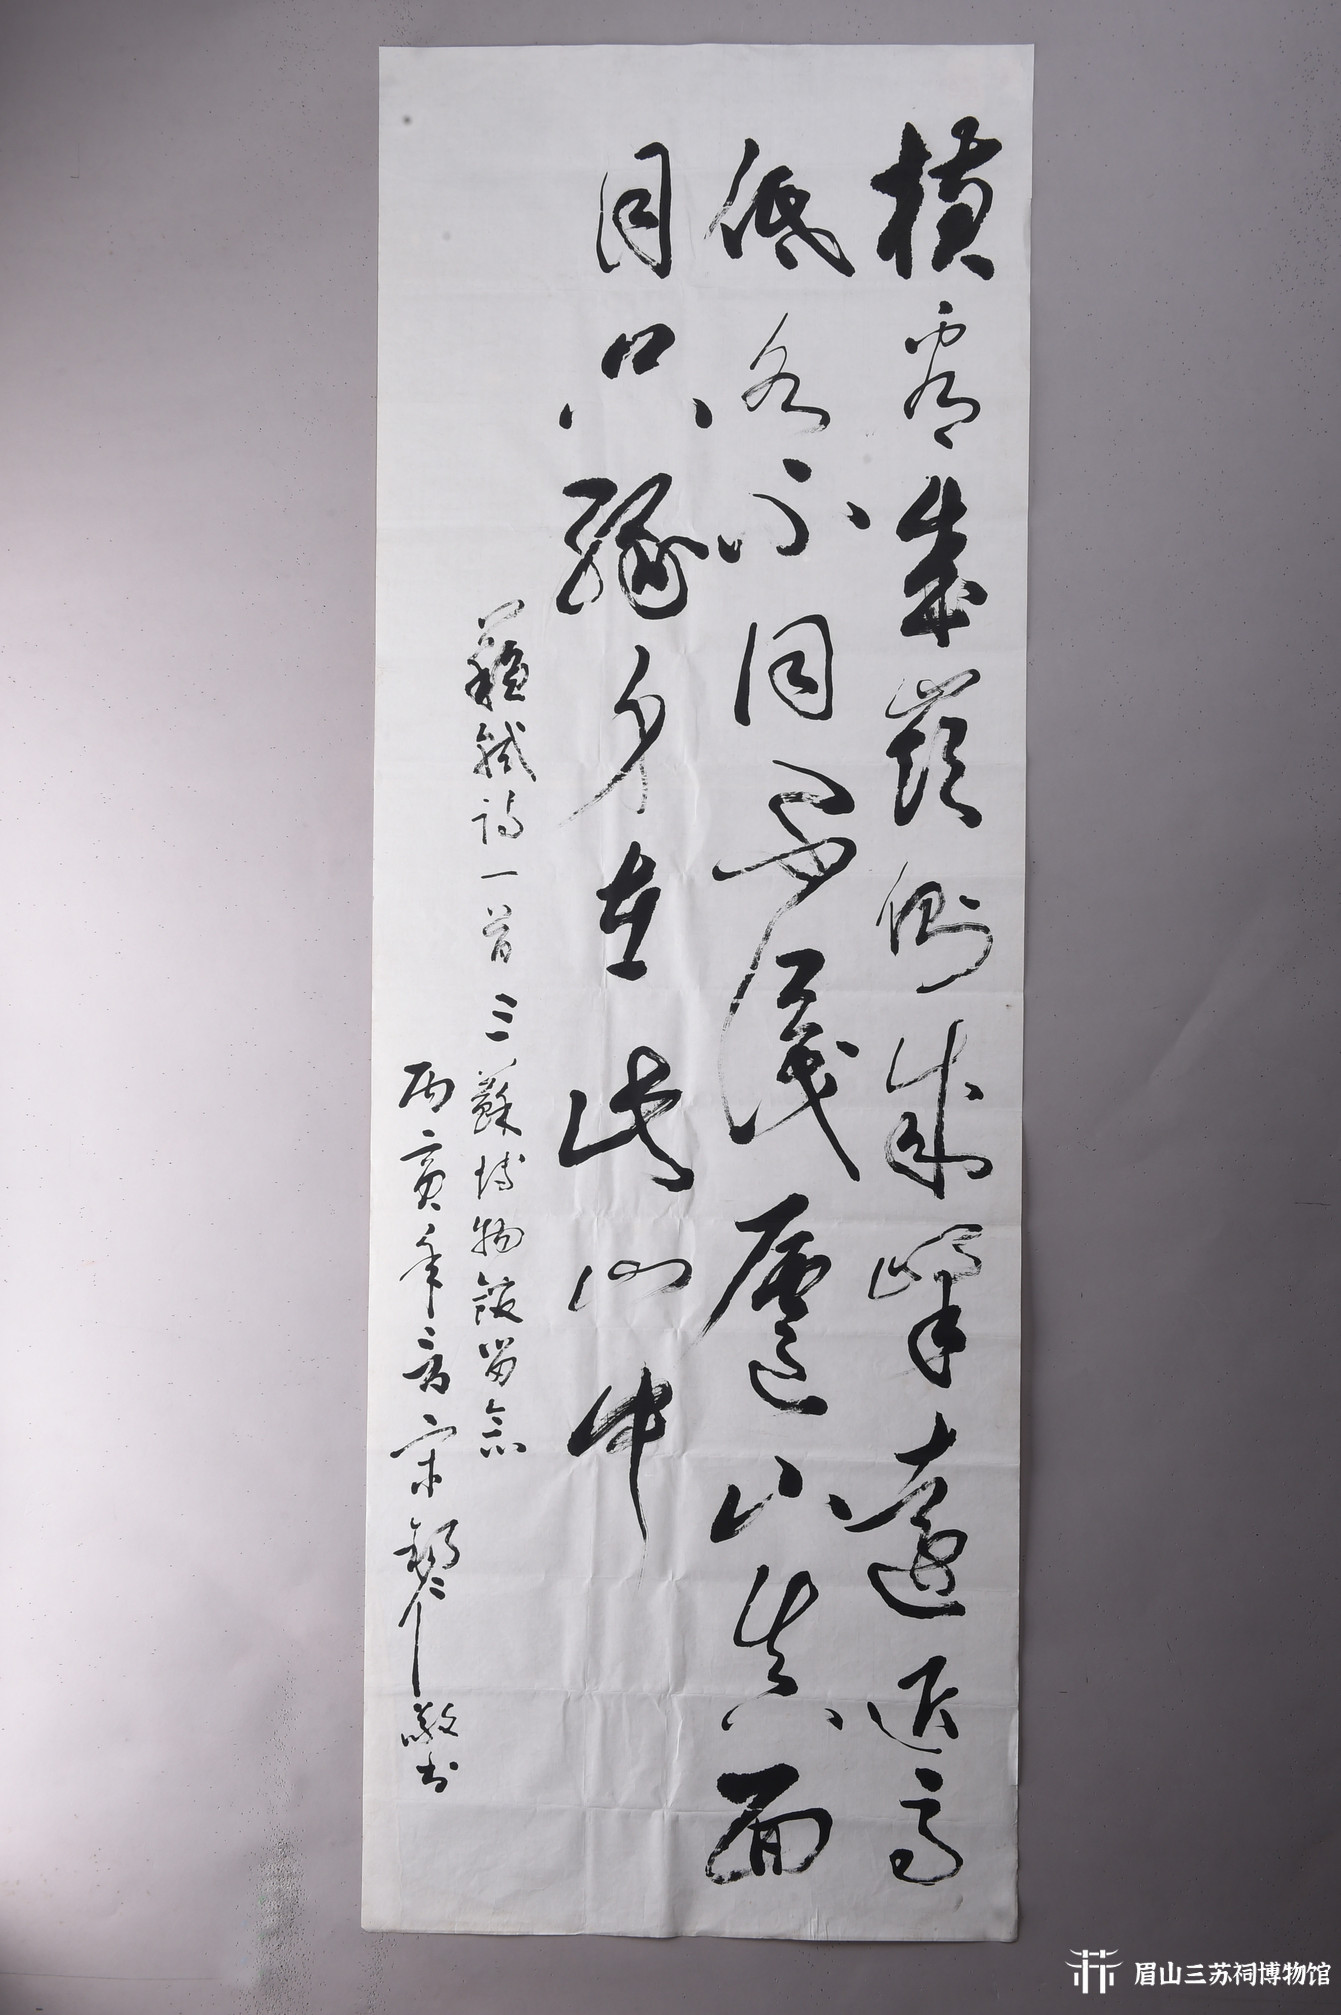 横看成嶺側成峰遠近高
低各不同不識廬山真面
目只緣身在此山中
蘇軾詩一首 三蘇博物館留念
丙寅年 宋 敬书
眉山三苏祠博物馆